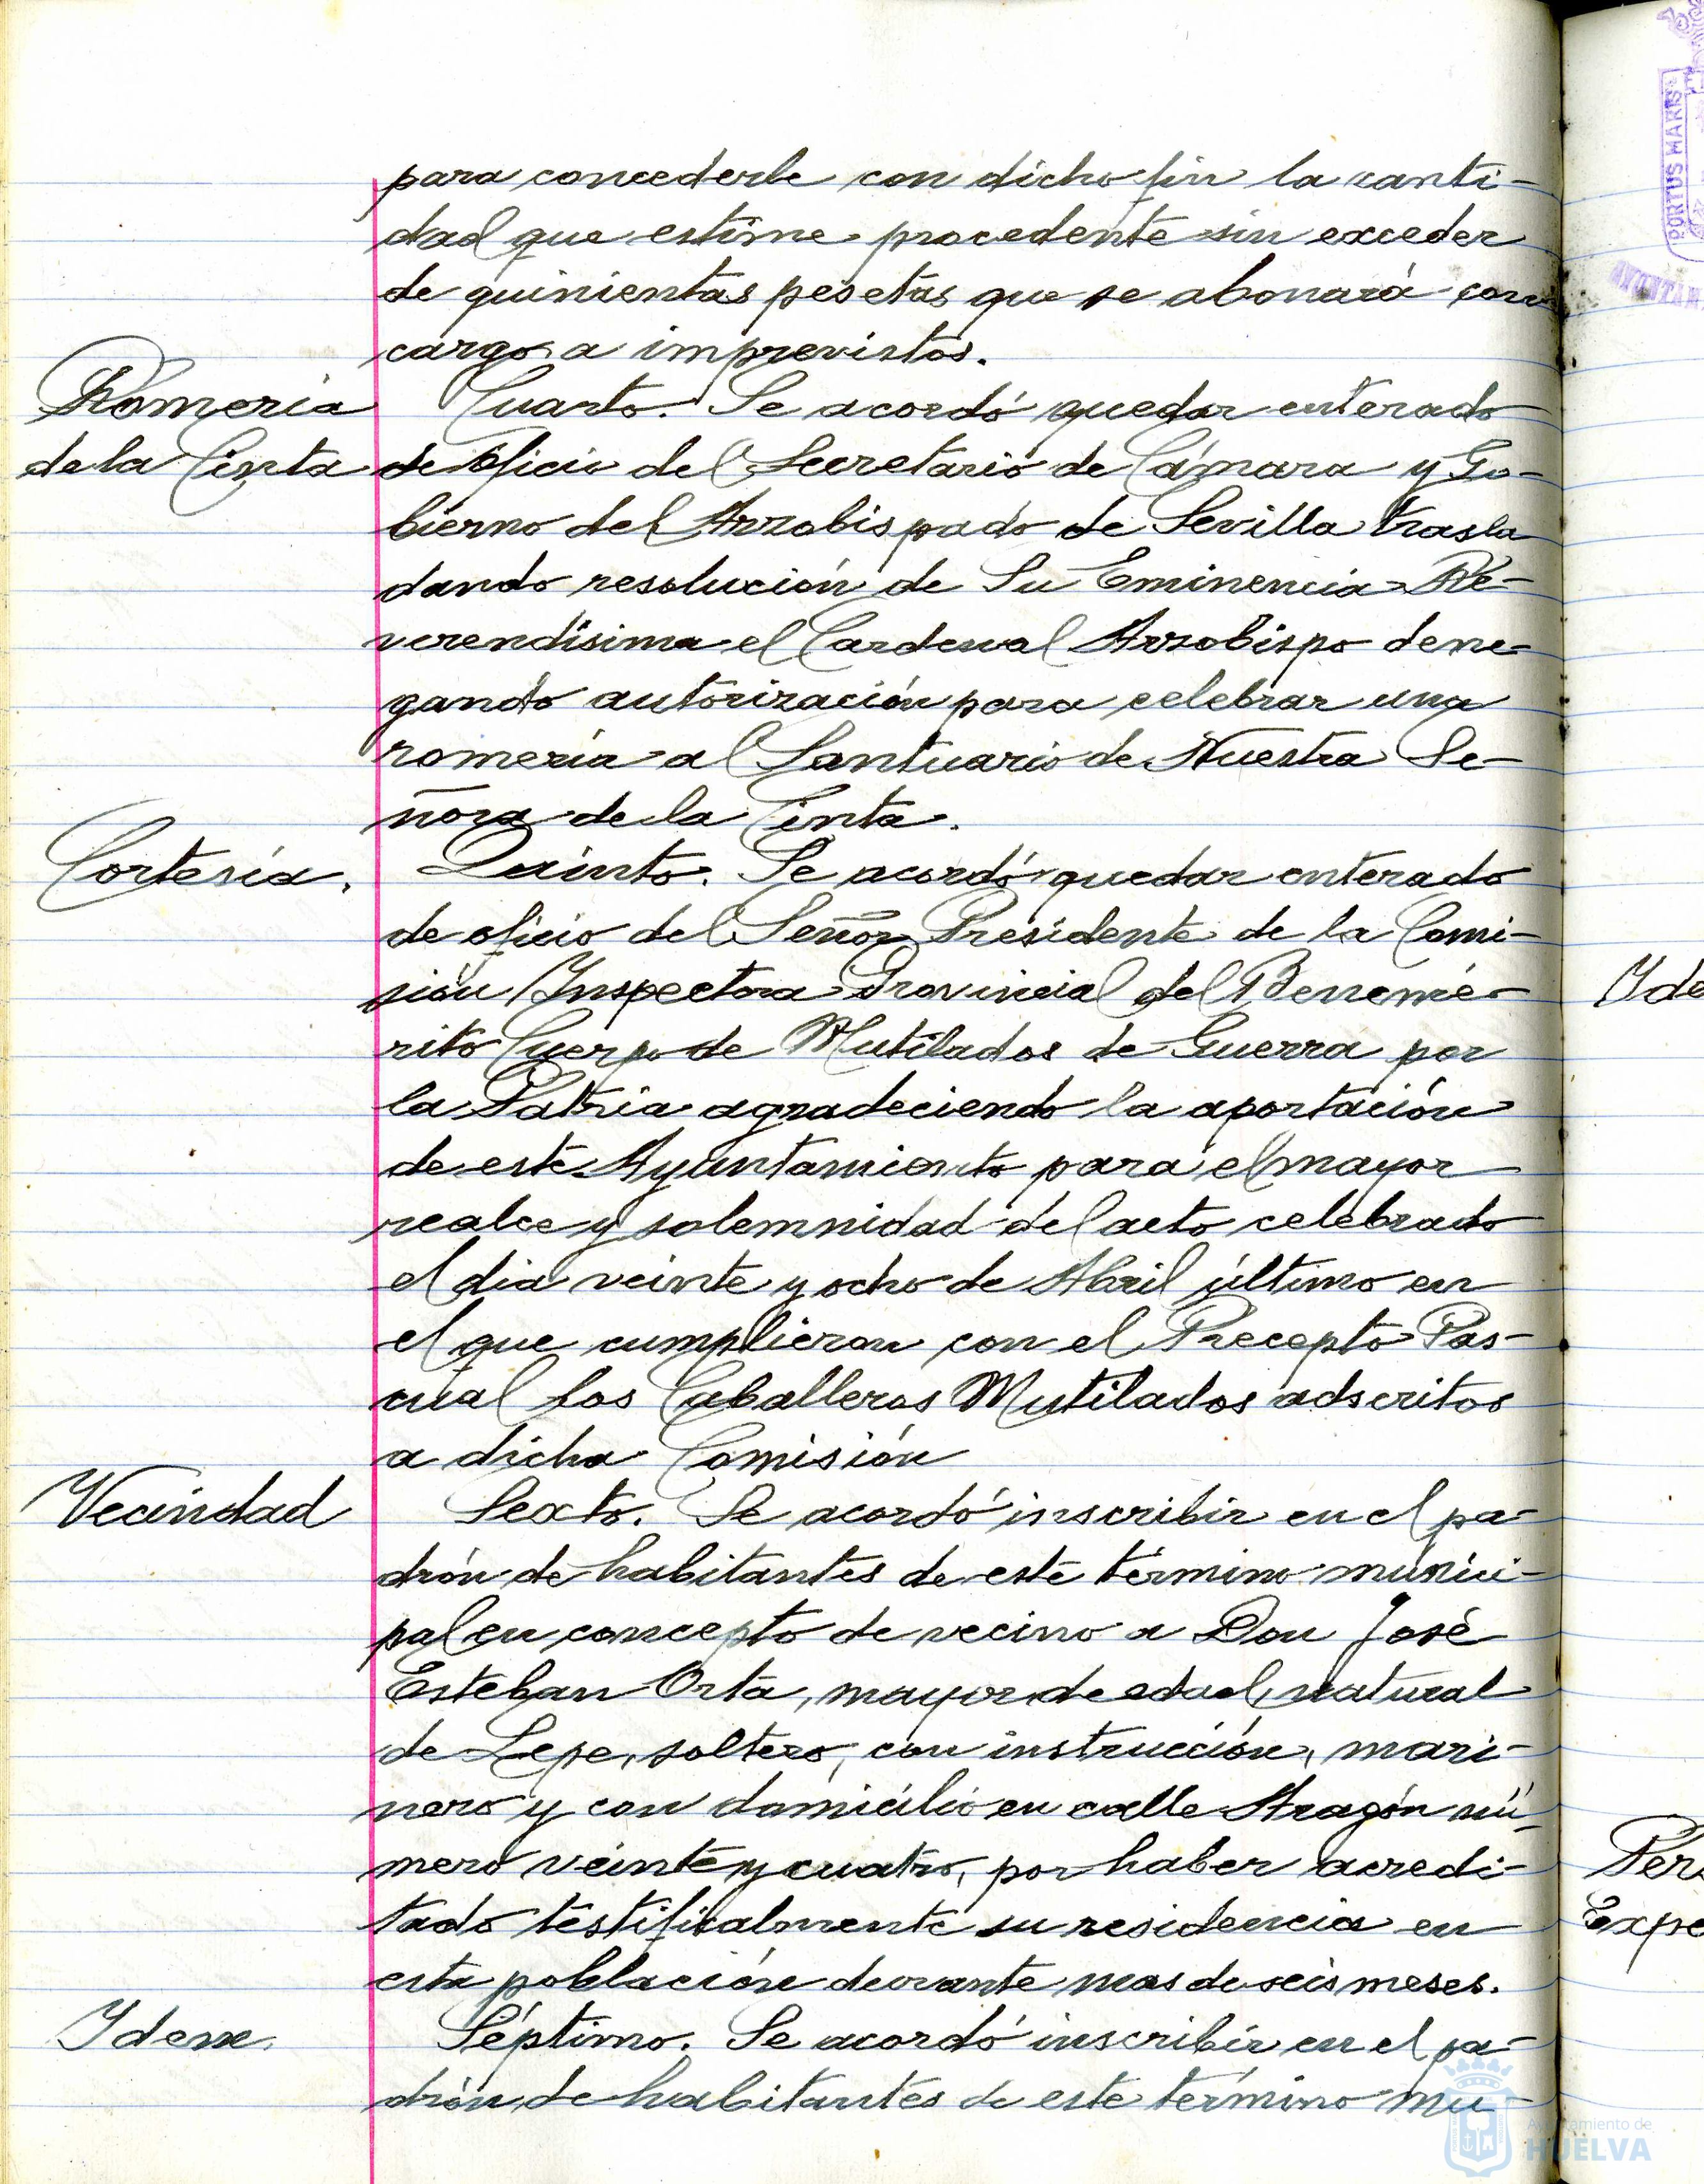 para concederle con dicho fin la canti-
dad que estime procedente sin exceder
de quinientas pesetas que se abonará con
cargo a imprevistos.
Romería
de la Cinta
Cuarto. Se acordó quedar enterado
de oficio del Secretario de Cámara y Go-
bierno del Arzobispado de Sevilla trasla
dando resolución de Su Eminencia Re-
verendísima el Cardenal Arzobispo dene-
gando autorización para celebrar una
romería al Santuario de Nuestra Se-
ñora de la Cinta.
Cortesía.
Quinto. Se acordó quedar enterado
de oficio del Señor Presidente de la Comi-
sión Inspectora Provincial del Benemé-
rito Cuerpo de Mutilados de Guerra por
la Patria agradeciendo la aportación
de este Ayuntamiento para el mayor
realce y solemnidad del acto celebrado
el dia veinte y ocho de Abril último en
el que cumplieron con el Precepto Pas-
cual los Caballeros Mutilados adscritos
a dicha Comisión
Vecindad
Sexto. Se acordó inscribir en el pa-
drón de habitantes de este término munici-
pal en concepto de vecino a Don José
Esteban Orta, mayor de edad, natural
de Lepe, soltero, con instrucción, mari-
nero y con domicilio en calle Aragón nú-
mero veinte y cuatro, por haber acredi-
tado testificalmente su residencia en
esta población durante mas de seis meses.
Idem.
Séptimo. Se acordó inscribir en el pa-
drón de habitantes de este término mu-
PORTUS MARIS
Ayuntamiento de
HUELVA